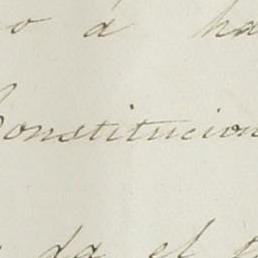 o á ha
Constitucion
da el